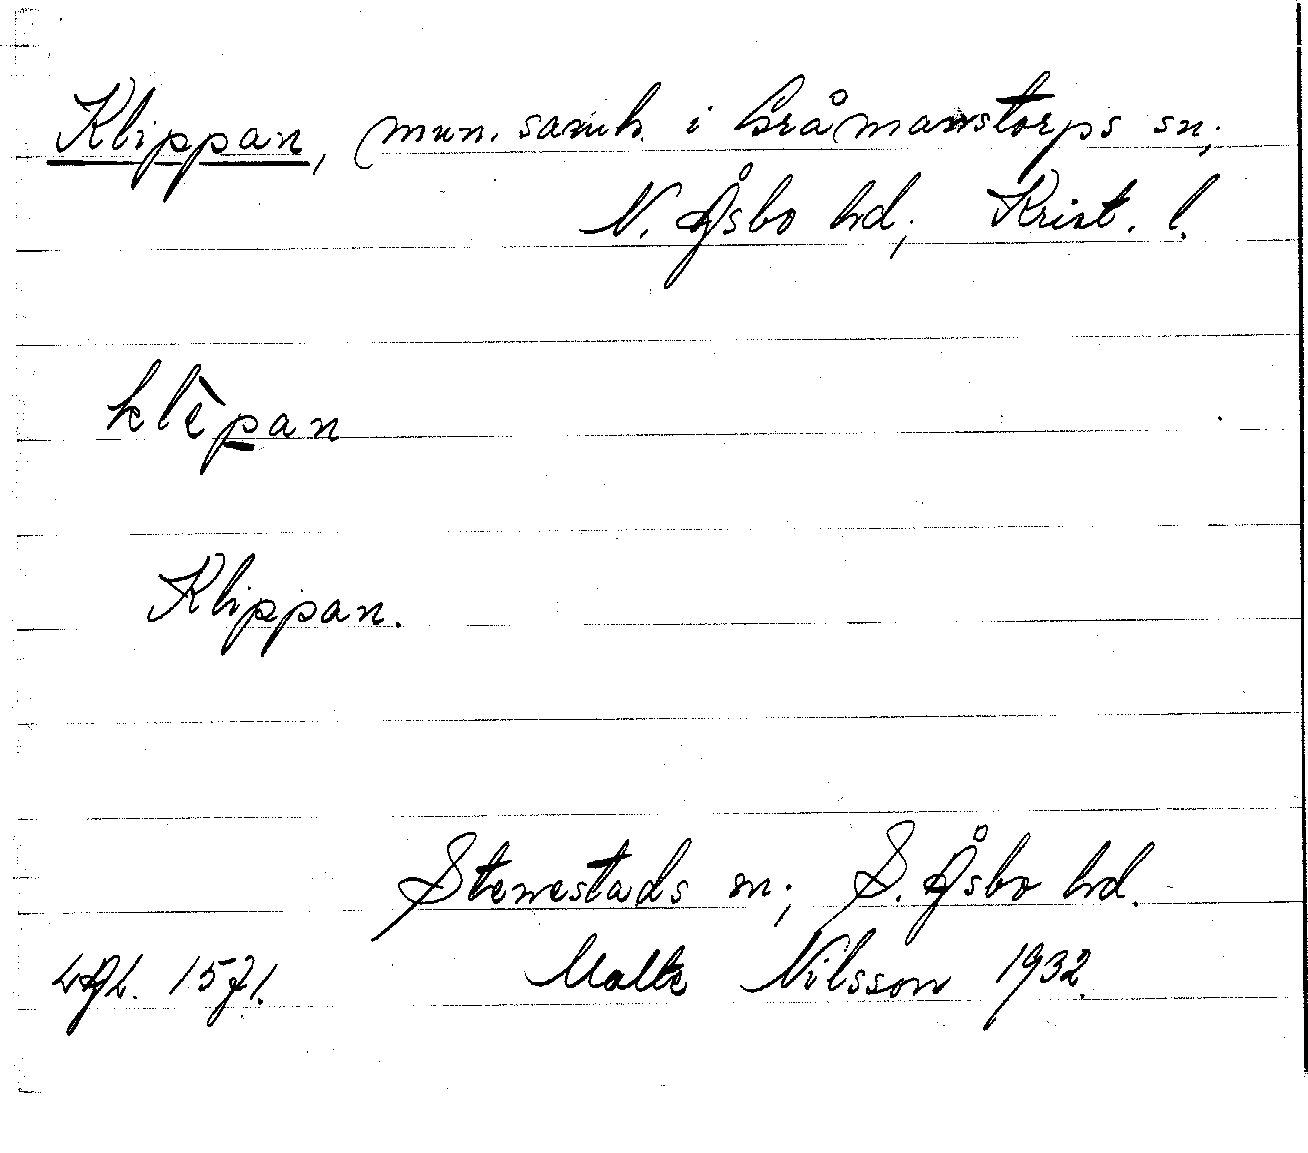 Klippan, mun. samh. i Gråmanstorps sn;
N. Åsbo hd; Krist. l.
klèpan
Klippan.
Stenestads sn; S. Åsbo hd.
LAL. 1571. Malte Nilsson 1932.